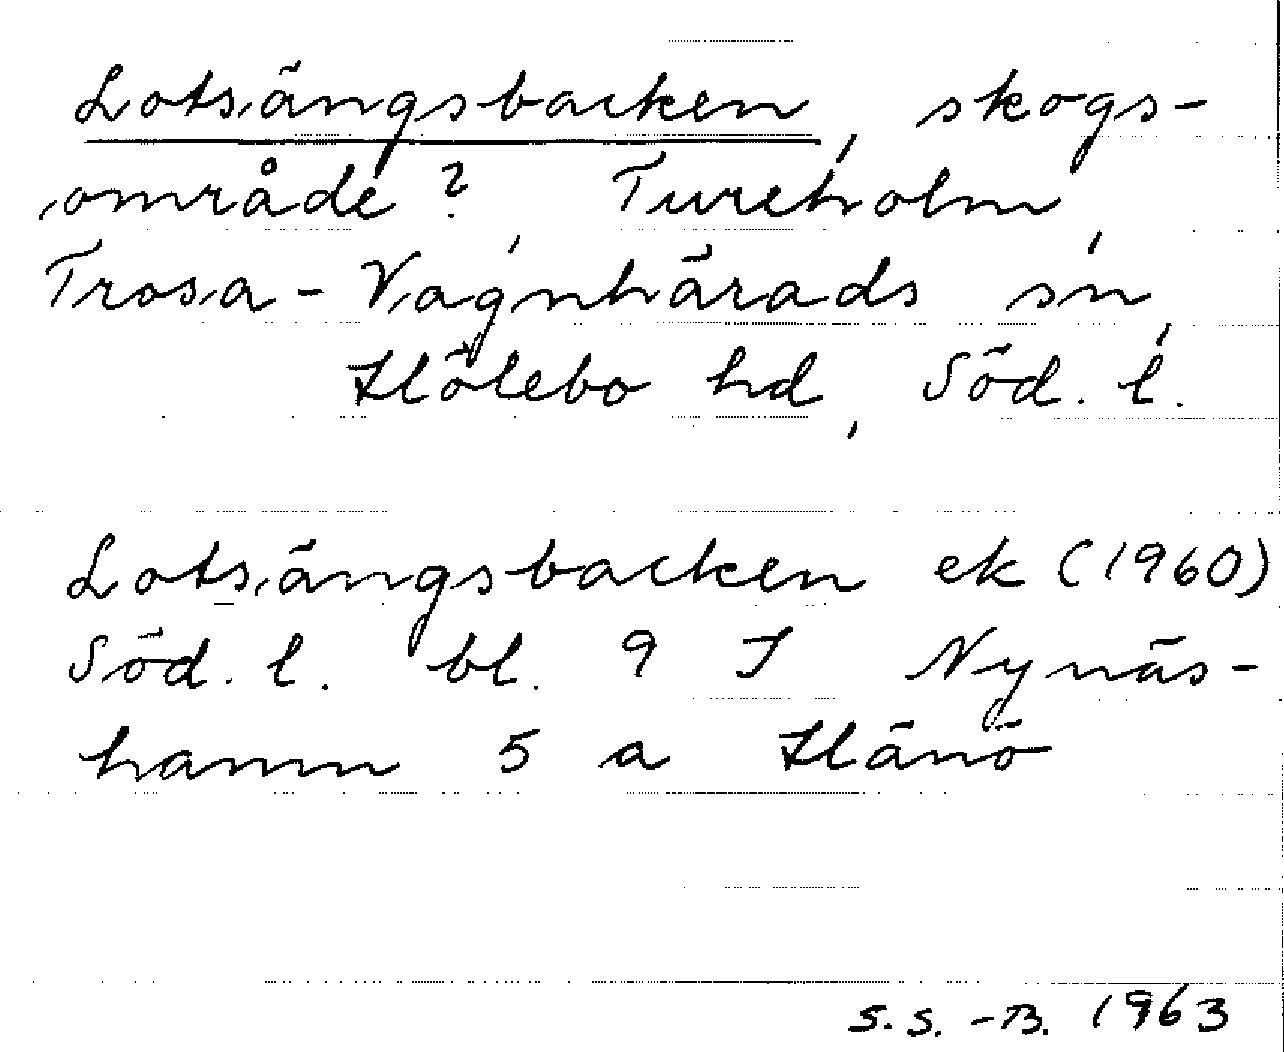 Lotsängsbacken, skogs-
område?, Tureholm,
Trosa-Vagnhärads sn,
Hölebo hd, Söd. l.
Lotsängsbacken ek (1960)
Söd. l. bl. 9 I Nynäs-
hamn 5 a Hänö
S.S.-B. 1963